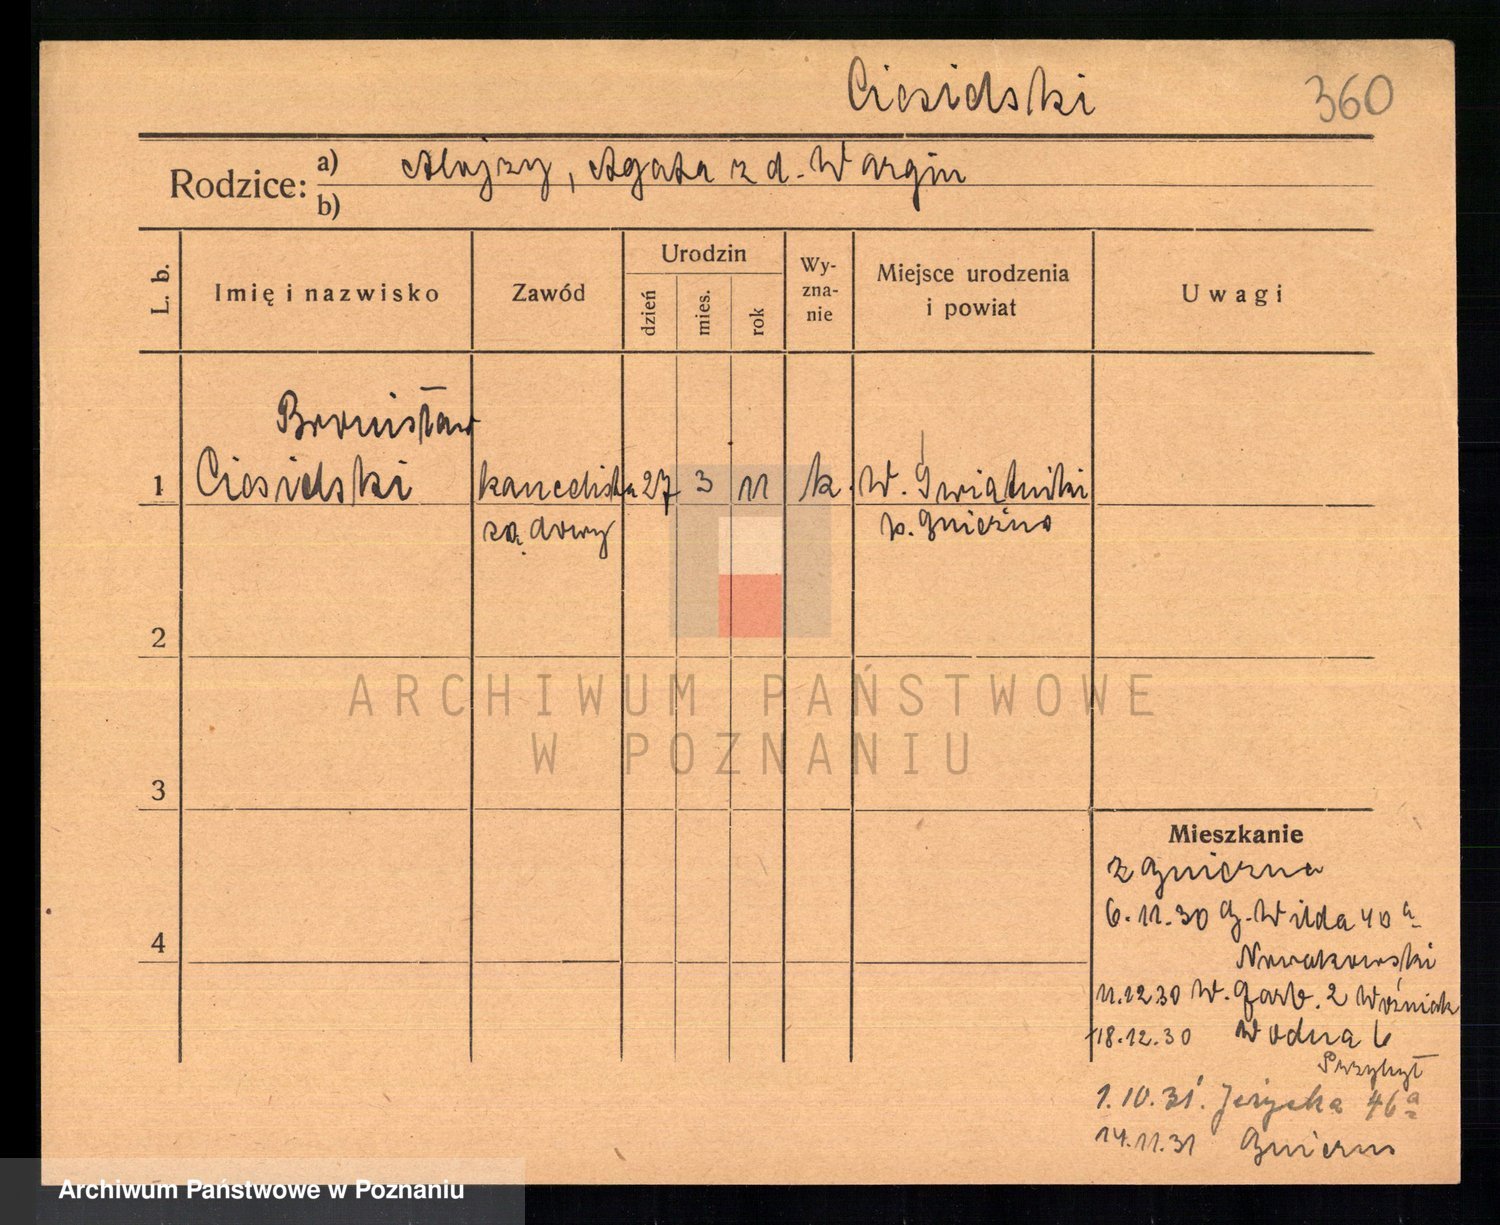 Ciesielski 360
Rodzice: a) Alojzy, Agata z d. Wargin
b)
L. b. Imię i nazwisko Zawód Urodzin dzień mies. rok Wy-zna-nie Miejsce urodzenia i powiat Uwagi
Bronisław
1 Ciesielski kancelista 27 3 11 k. W. Świątniki
sądowy p. Gniezno
2
ARCHIWUM PAŃSTWOWE
W POZNANIU
3
Mieszkanie
z Gniezna
6.11.30 G. Wilda 40a
4
Nowakowski
11.12.30 W. Garb. 2 Woźniak
18.12.30 Wodna 6
Przybył
1.10.31. Jeżycka 46a
14.11.31 Gniezno
Archiwum Państwowe w Poznaniu